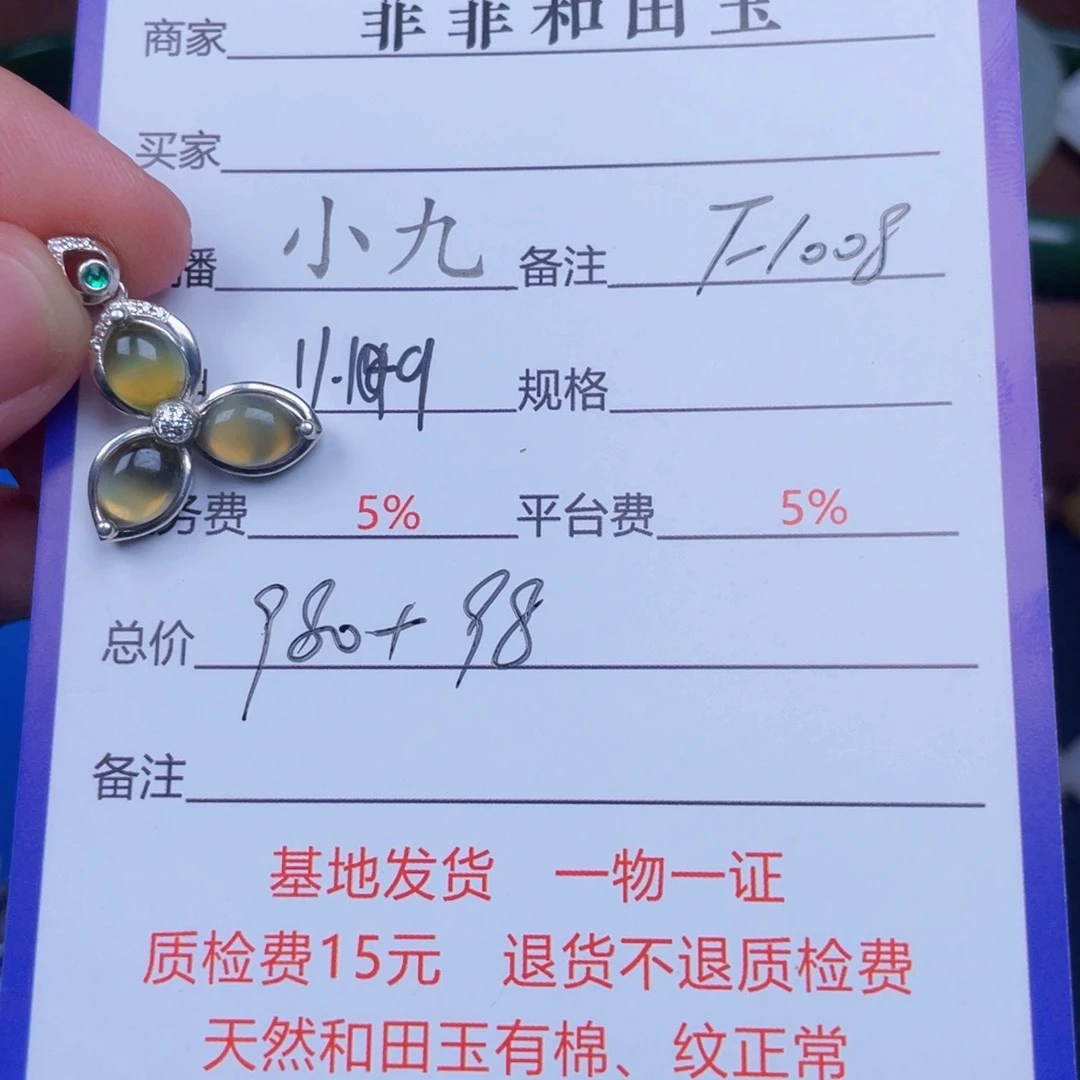 商家 菲菲和田玉
买家
播 小九 备注 T-1008
规格
务费 5% 平台费 5%
总价 980+98
备注
基地发货 一物一证
质检费15元 退货不退质检费
天然和田玉有棉、纹正常